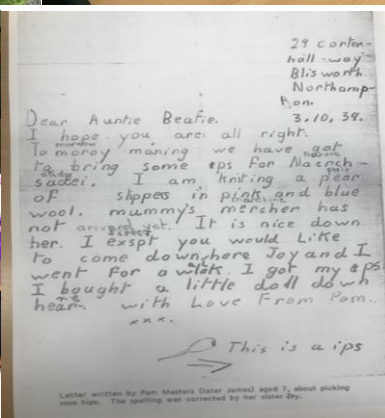 29 corter-
hall-way
Blisworth
Northamp-
ton.
3.10.39.
Dear Auntie Beatie.
I hope you are all right.
To moroy maning we have got
to bring some ips for Naench-
sadei. I am kniting a pear
pair
of slippers in pink and blue
wool. mummy's mercher has
not arived yet. It is nice down
expect
her. I exspt you would Like
to come down here Joy and I
went for a walk. I got my ips.
I bought a little doll down
hear. with Love From Pam.
x x x.
This is a ips
Letter written by Pam Masters (later James) aged 7, about picking
rose hips. The spelling was corrected by her sister Joy.